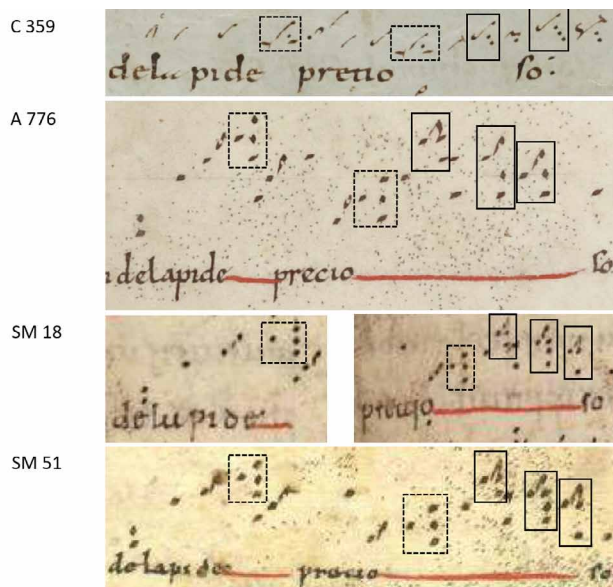 C 359
delapide precio so:
A 776
delapide precio so
SM 18
delapide precio so
SM 51
delapide precio so